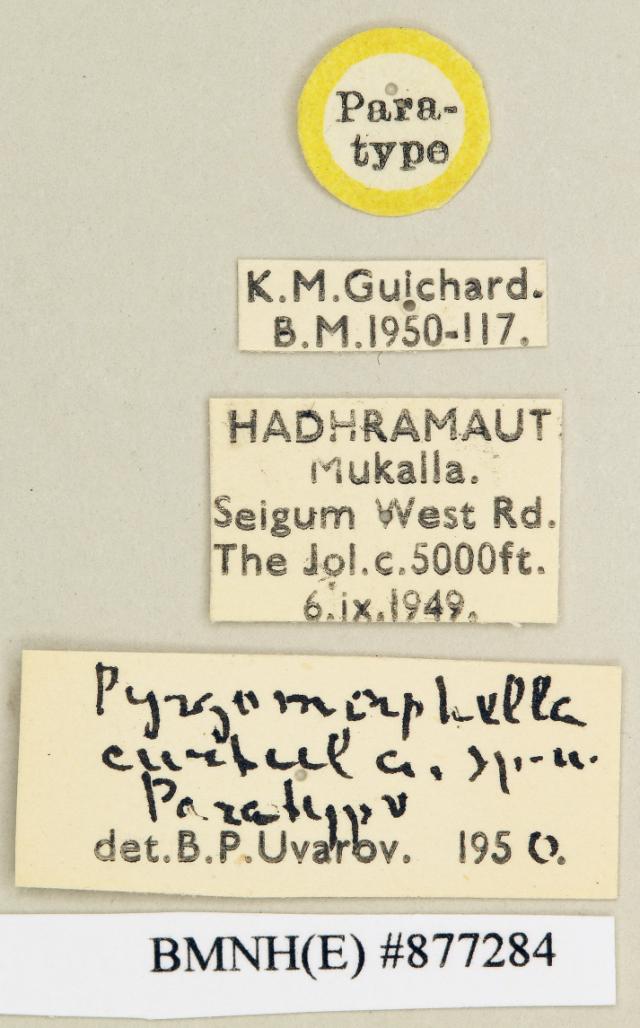 Para-
type
K.M.Guichard.
B.M.1950-117.
HADHRAMAUT
Mukalla.
Seigum West Rd.
The Jol.c.5000ft.
6.ix.1949.
Pyrgomorphella
curtula, sp.n.
Paratype
det.B.P.Uvarov. 1950.
BMNH(E) #877284